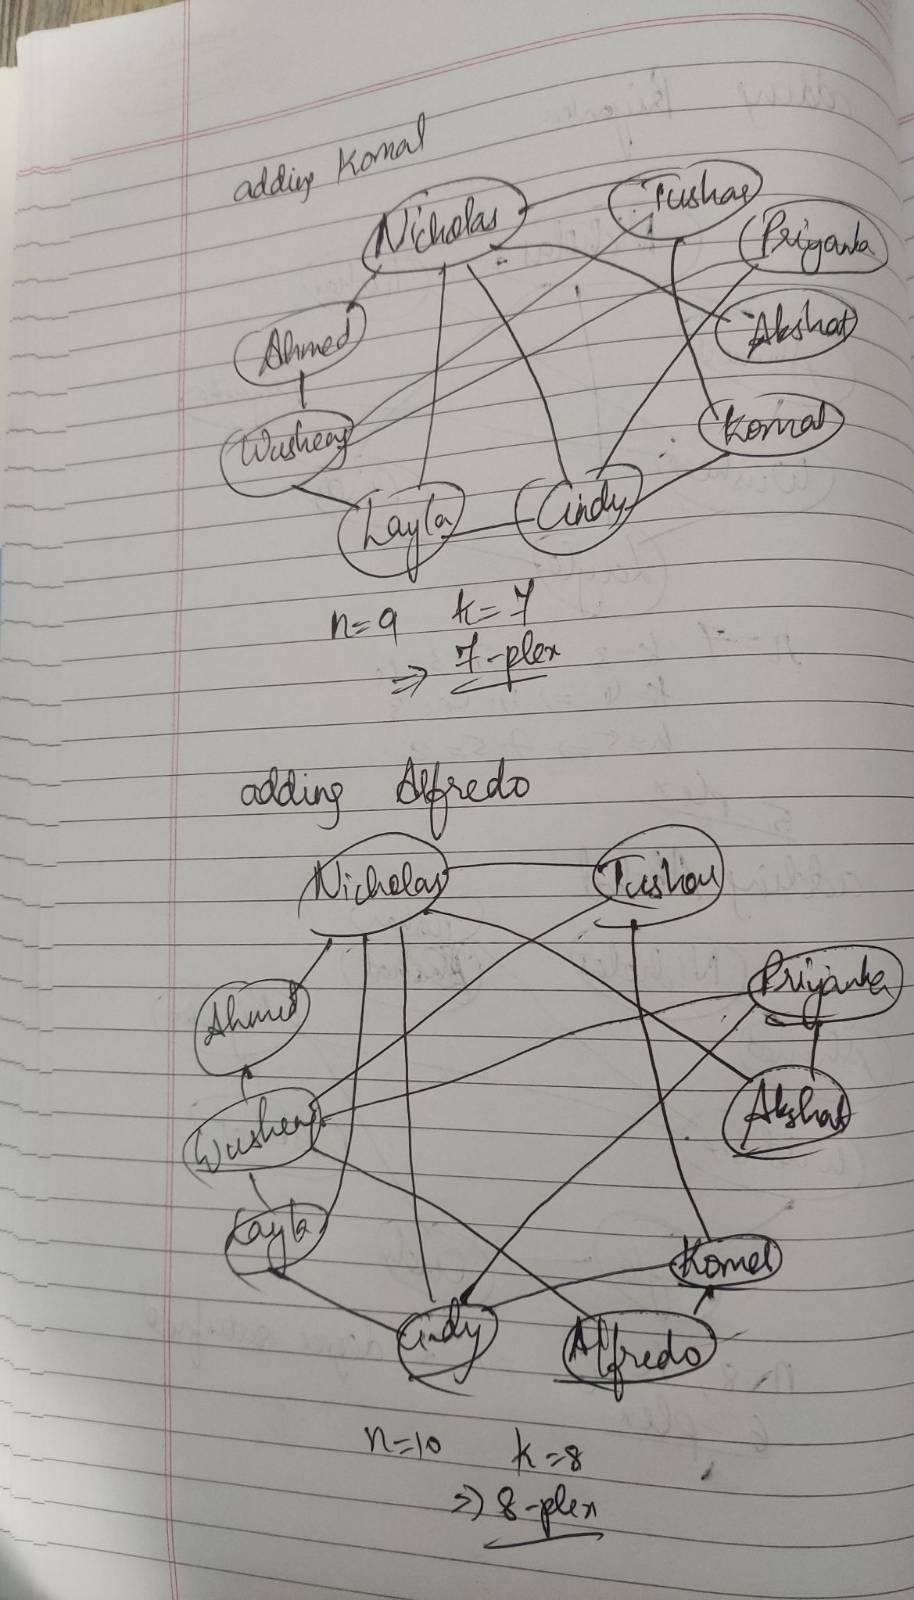 adding Komal
Nicholas
Tushar
Priyanka
Akshat
Ahmed
Komal
Wusheng
Layla
Cindy
n=9 k=7
⇒ 7-plex
adding Alfredo
Nicholas
Tushar
Priyanka
Ahmed
Akshat
Wusheng
Layla
Komal
Cindy
Alfredo
n=10 k=8
⇒ 8-plex